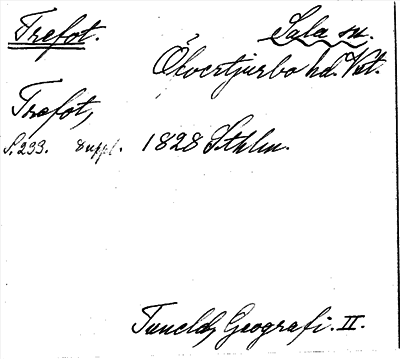 Trefot. Sala sn.
Övertjurbo hd. Vstm.
Trefot,
S. 233. suppl. 1828 Sthlm.
Tunelds Geografi. II.